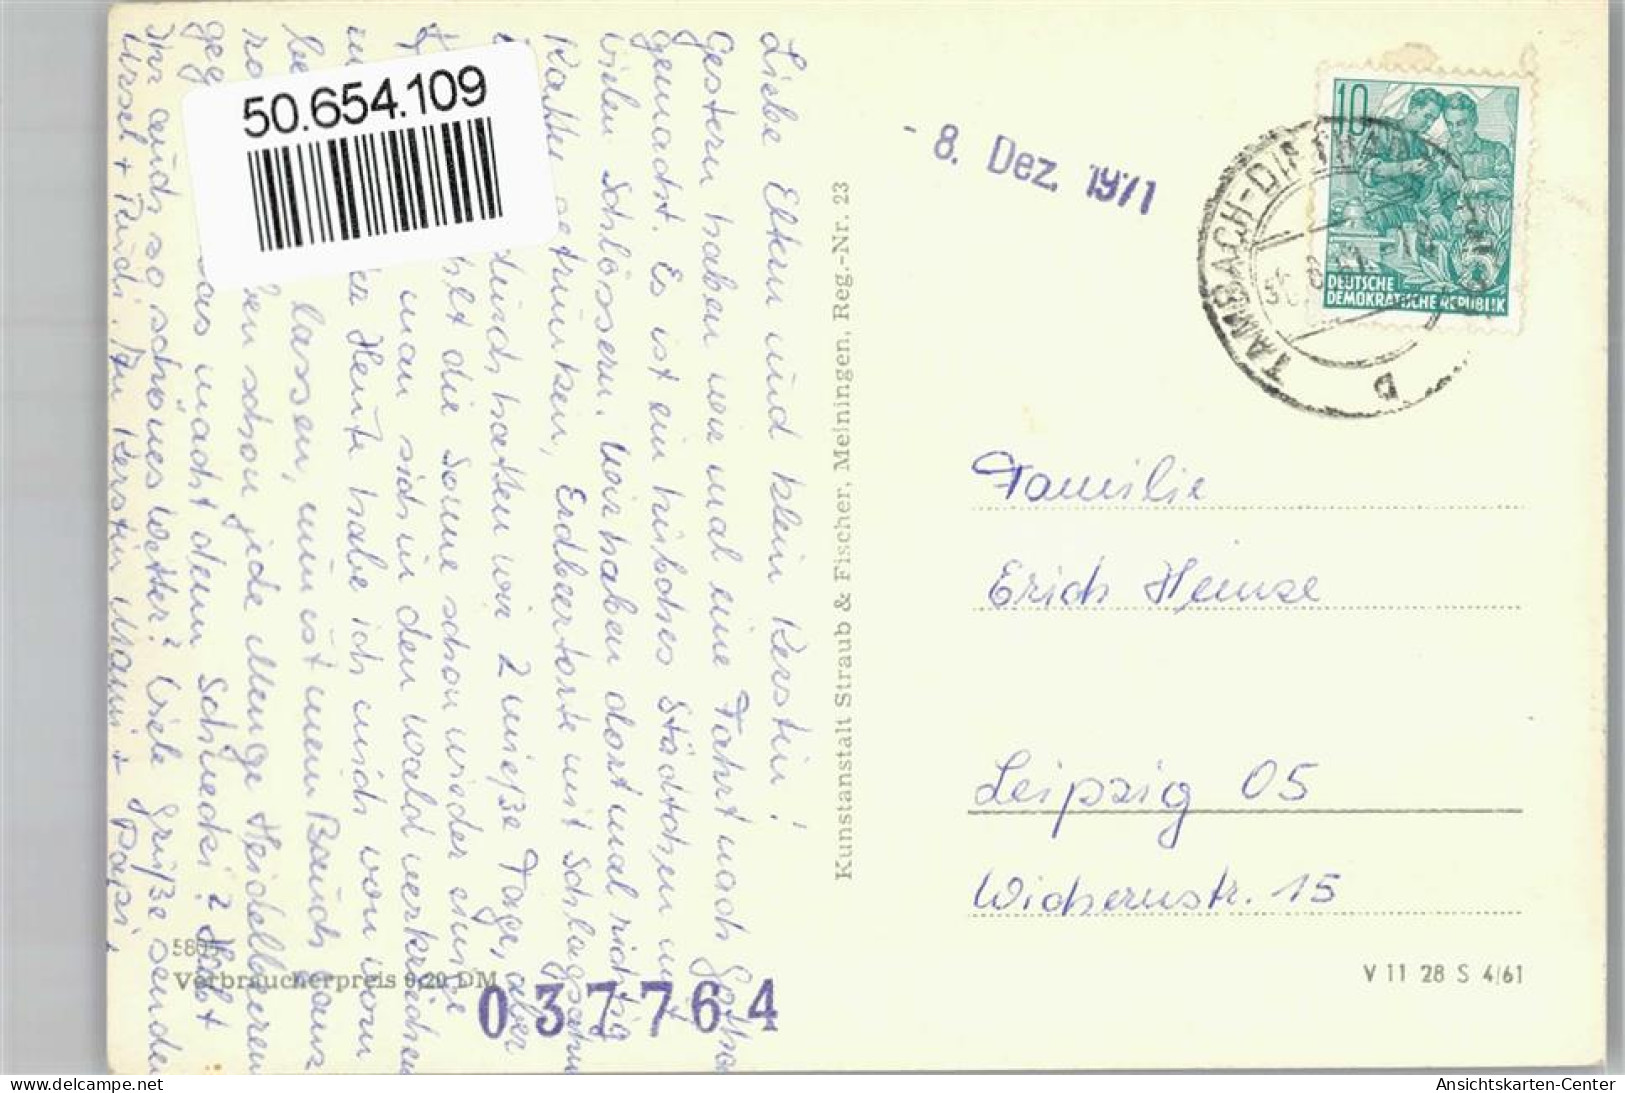 Liebe Eltern und klein Kerstin!
Gestern haben wir mal eine Fahrt nach Gotha
gemacht. Es ist ein hübsches Städtchen mit
vielen Schlössern. Wir haben dort mal richtig
Kaffee getrunken, Erdbeertorte mit Schlagsahne
Zwischendurch hatten wir 2 miese Tage, aber
die Sonne schon wieder
man sich in den Wald verkriechen
Heute habe ich mich von
lassen, nun ist mein Bauch ganz
schon jede Menge Heidelbeeren
macht denn Schnecki? Habt
Ihr auch so schönes Wetter? Viele Grüße senden
Ursel + Rudi. An Kerstin Mami + Papi.
50.654.109
5805
Verbraucherpreis 0,20 DM
037764
Kunstanstalt Straub & Fischer, Meiningen, Reg.-Nr. 23
8. Dez. 1971
TAMBACH-DIETHARZ
b
10
DEUTSCHE
DEMOKRATISCHE REPUBLIK
Familie
Erich Heinze
Leipzig 05
Wichernstr. 15
V 11 28 S 4/61
delcampe.net
Ansichtskarten-Center